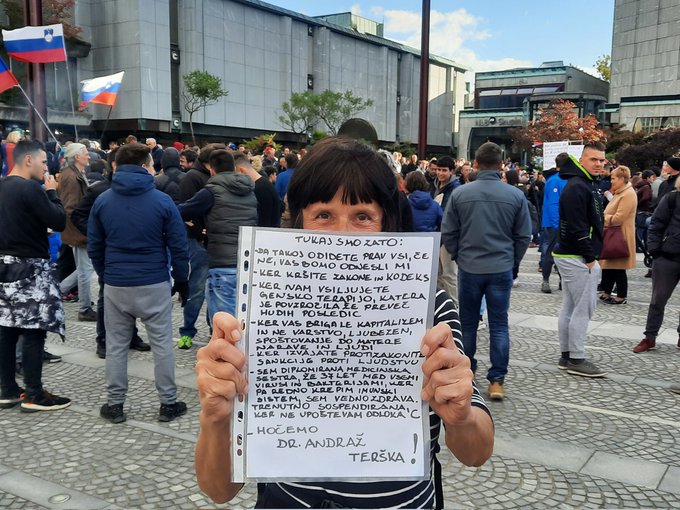 TUKAJ SMO ZATO:
- DA TAKOJ ODIDETE PRAV VSI, ČE
NE, VAS BOMO ODNESLI MI
- KER KRŠITE ZAKONE IN KODEKS
- KER NAM VSILJUJETE
GENSKO TERAPIJO, KATERA
JE POVZROČILA ŽE PREVEČ
HUDIH POSLEDIC
- KER VAS BRIGA LE KAPITALIZEM
IN NE VARSTVO, LJUBEZEN,
SPOŠTOVANJE DO MATERE
NARAVE IN LJUDI
- KER IZVAJATE PROTIZAKONITE
SANKCIJE PROTI LJUDSTVU
- SEM DIPLOMIRANA MEDICINSKA
SESTRA ŽE 37 LET MED VSEMI
VIRUSI IN BAKTERIJAMI, KER
PA REDNO KREPIM IMUNSKI
SISTEM, SEM VEDNO ZDRAVA.
TRENUTNO SUSPENDIRANA
KER NE UPOŠTEVAM ODLOKA
- HOČEMO
DR. ANDRAŽ
TERŠKA!